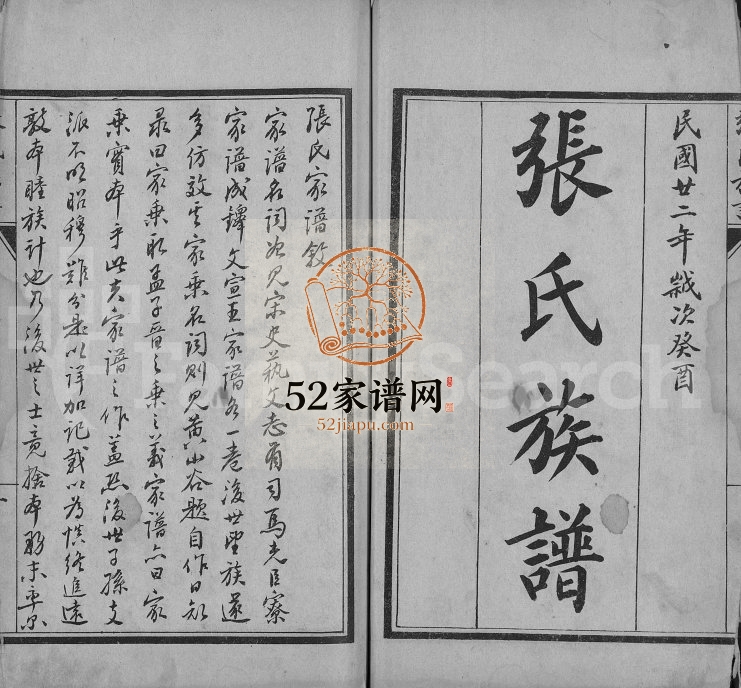 民國廿二年歲次癸酉
張氏族譜
張氏家譜敘
家譜名詞始見宋史藝文志有司馬光臣寮
家譜成鐸文宣王家譜各一卷後世望族遂
多仿效其家乘名詞則見黃山谷題自作日知
录曰家乘取孟子晉之乘之義家譜亦曰家
乘實本乎此夫家譜之作蓋恐後世子孫支
派不明昭穆難分是以詳加記載以為慎終追遠
敦本睦族計也乃後世之士竟捨本務末率
52家谱网
52jiapu.com